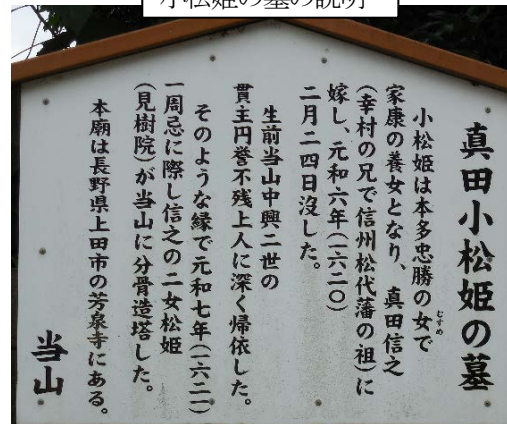 小松姫の墓の説明
真田小松姫の墓
小松姫は本多忠勝の女で
むすめ
家康の養女となり、真田信之
(幸村の兄で信州松代藩の祖)に
嫁し、元和六年(一六二〇)
二月二四日没した。
生前当山中興二世の
貫主円誉不残上人に深く帰依した。
そのような縁で元和七年(一六二一)
一周忌に際し信之の二女松姫
(見樹院)が当山に分骨造塔した。
本廟は長野県上田市の芳泉寺にある。
当山